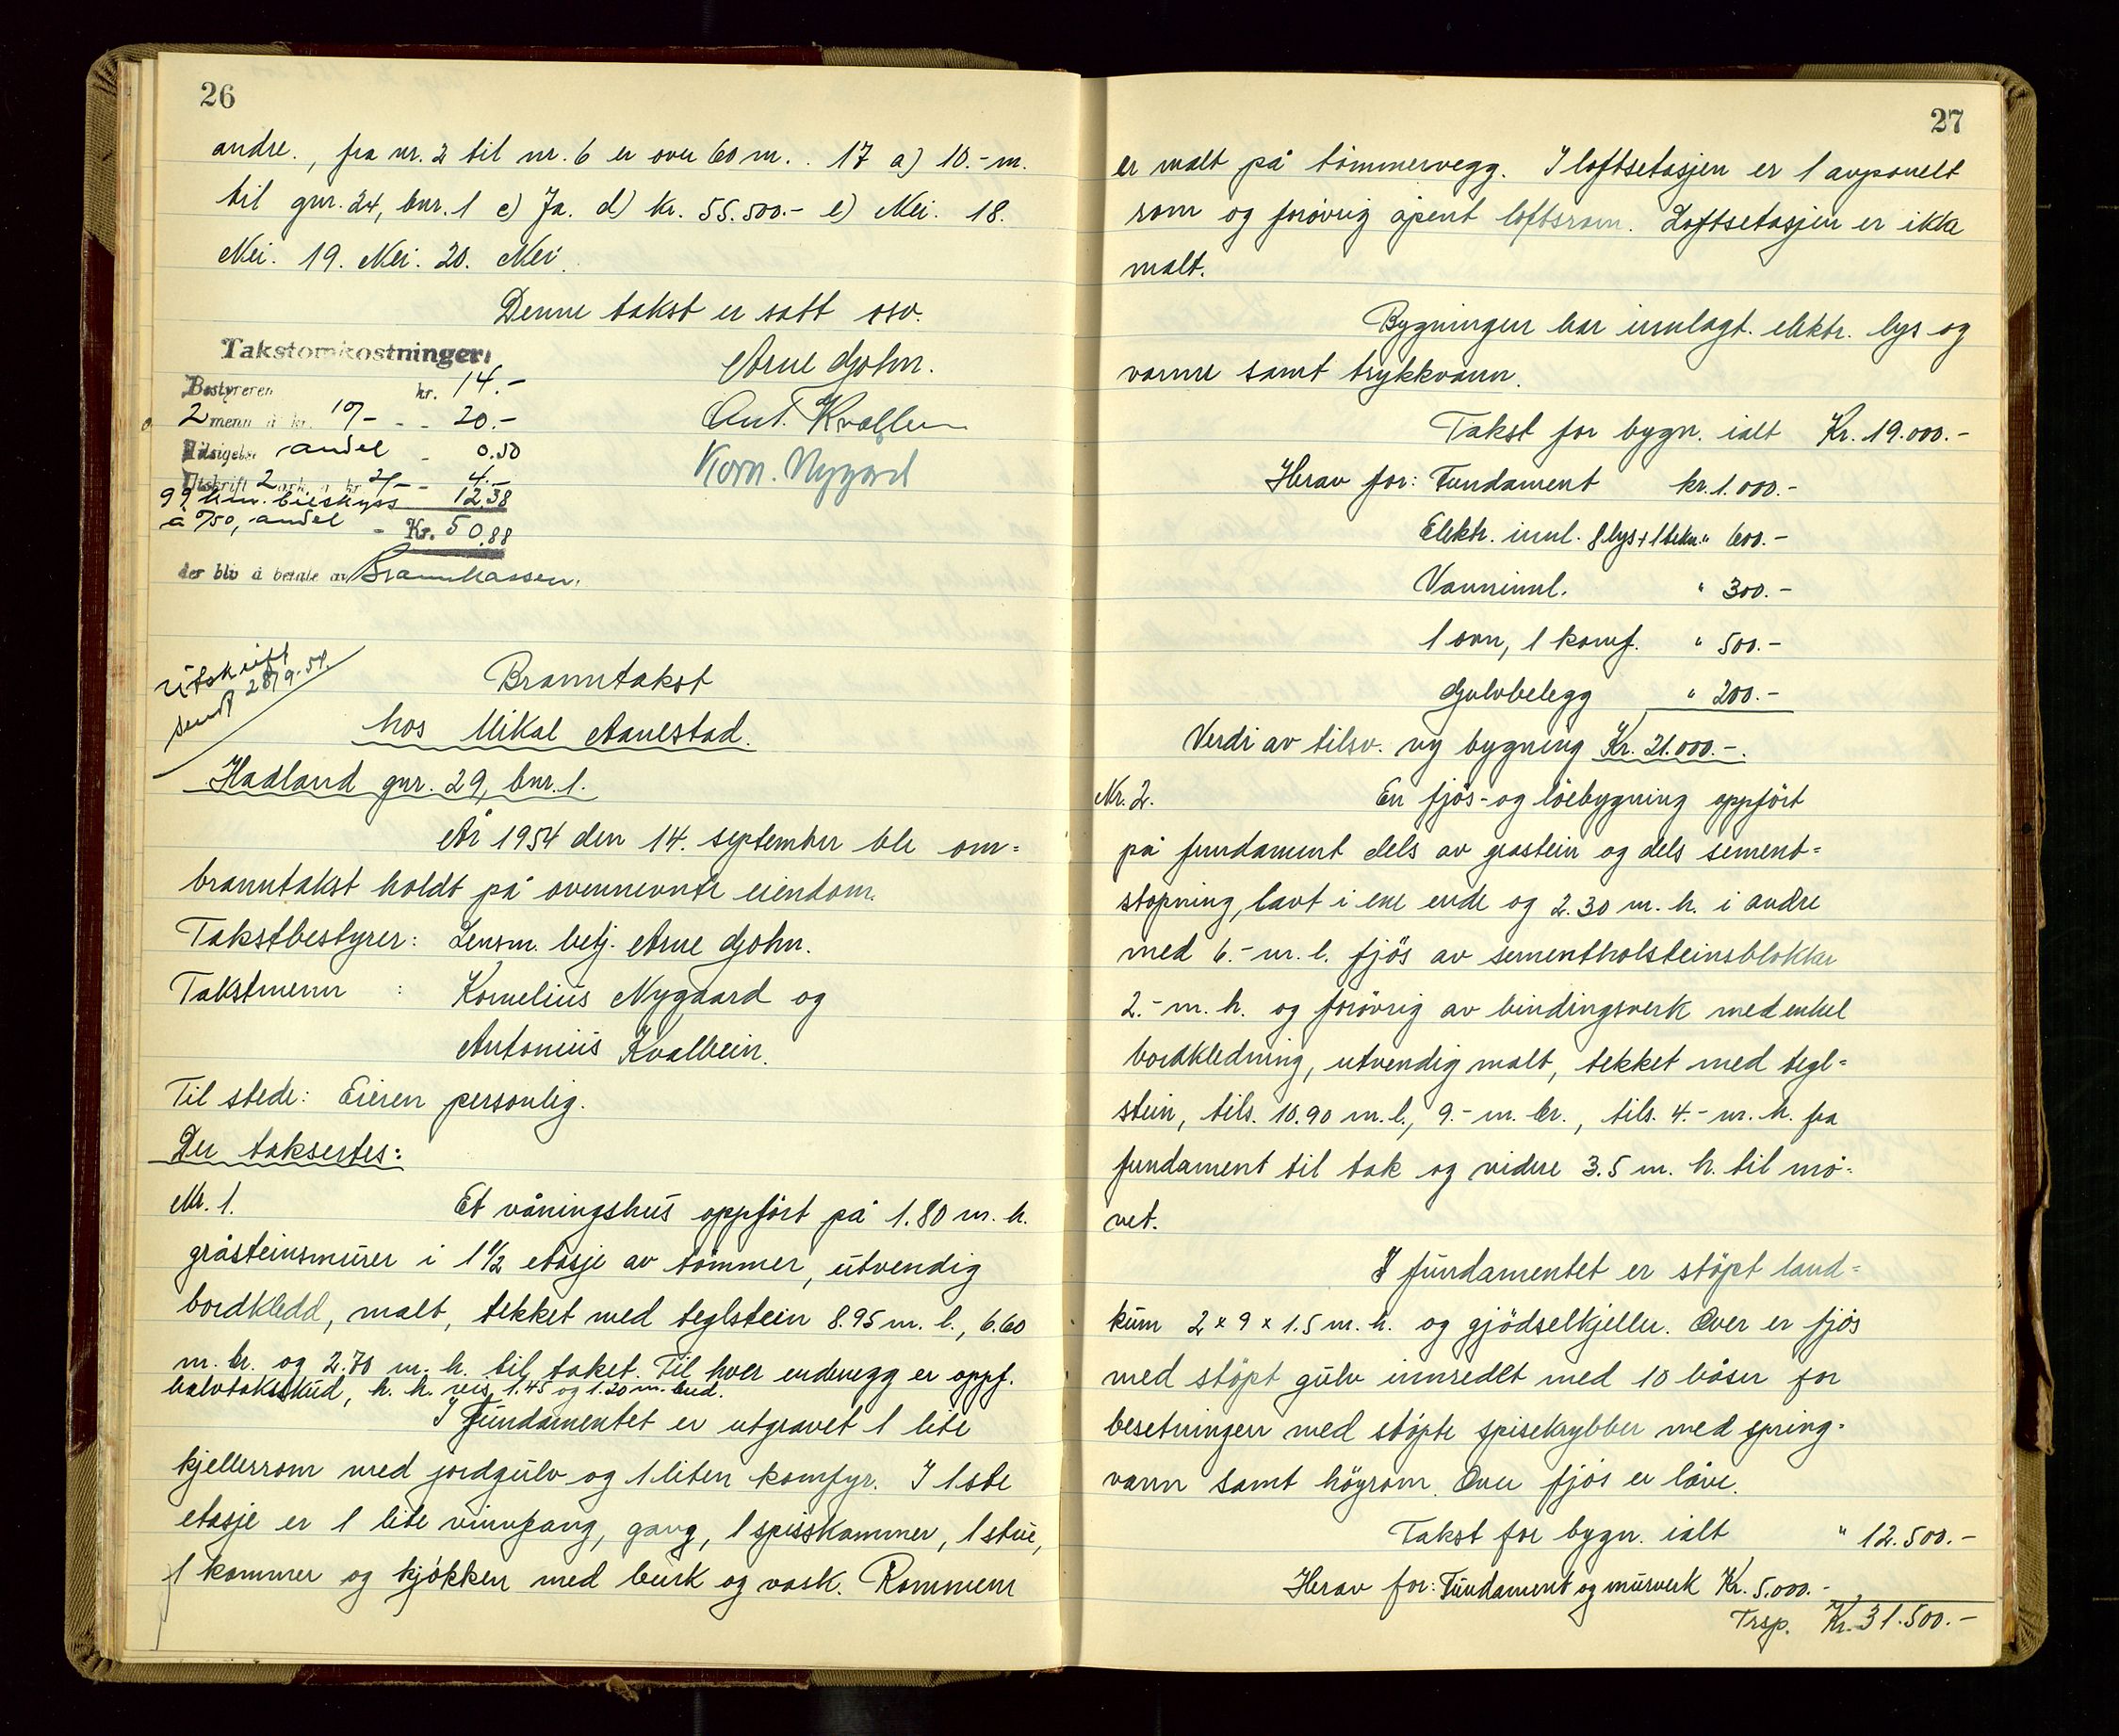 26
andre., fra nr. 2 til nr. 6 er over 60 m.. 17 a) 10.- m.
til gnr. 24, bnr. 1 c) Ja. d) kr. 55.500.- e) Nei. 18.
Nei. 19. Nei. 20. Nei.
Denne takst er satt osv.
Takstomkostninger:
Bestyreren kr. 14.-
2 menn à kr. 10/- - - 20.-
Tilsigelse andel - 0.50
Utskrift 2 ark à kr 2/- - 4.-
99 km. bilskyss 12.38
a 0/50, andel - Kr. 50.88
der blir å betale av Brannkassen.
Arne Gjohn.
Ant. Kvalbein
Korn. Nygård
Utskrift
sendt 28/9-54.
Branntakst
hos Mikal Aanestad.
Hadland gnr. 29, bnr. 1.
År 1954 den 14. september ble om=
branntakst holdt på ovennevnte eiendom.
Takstbestyrer: Lensm. betj. Arne Gjohn.
Takstmenn : Kornelius Nygaard og
Antonius Kvalbein.
Til stede: Eieren personlig.
Der taksertes:
Nr. 1. Et våningshus oppført på 1.80 m. h.
gråsteinsmurer i 1 1/2 etasje av tømmer, utvendig
bordkledd, malt, tekket med teglstein 8.95 m. l., 6.60
m. br. og 2.70 m. h. til taket. Til hver endevegg er oppf.
halvtaksskud, h. h. vis 1.45 og 1.20 m. bred.
I fundamentet er utgravet 1 lite
kjellerrom med jordgulv og 1 liten komfyr. I 1ste
etasje er 1 lite vinnfang, gang, 1 spisskammer, 1 stue,
1 kammer og kjøkken med benk og vask. Rommene
27
er malt på tømmervegg. I loftsetasjen er 1 avpanelt
rom og forøvrig åpent loftsrom. Loftsetasjen er ikke
malt.
Bygningen har innlagt elektr. lys og
varme samt trykkvann.
Takst for bygn. ialt Kr. 19.000.-
Herav for: Fundament kr. 1.000.-
Elektr. innl. 8 lys + 1 tekn. " 600.-
Vanninnl. " 300.-
1 ovn, 1 komf. " 500.-
Gulvbelegg " 200.-
Verdi av tilsv. ny bygning Kr. 21.000.-.
Nr. 2. En fjøs- og løebygning oppført
på fundament dels av gråstein og dels sement=
støpning, lavt i ene ende og 2.30 m. h. i andre
med 6.- m. l. fjøs av sementholsteinsblokker
2.- m. h. og forøvrig av bindingsverk med enkel
bordkledning, utvendig malt, tekket med tegl=
stein, tils. 10.90 m. l., 9.- m. br., tils. 4.- m. h. fra
fundament til tak og videre 3.5 m. h. til mø=
net.
I fundamentet er støpt land=
kum 2 x 9 x 1.5 m. h. og gjødselkjeller. Over er fjøs
med støpt gulv innredet med 10 båser for
besetningen med støpte spisekrybber med spring=
vann samt høyrom. Over fjøs er låve.
Takst for bygn. ialt " 12.500.-
Herav for: Fundament og murverk Kr. 5.000.-
Trsp. Kr. 31.500.-